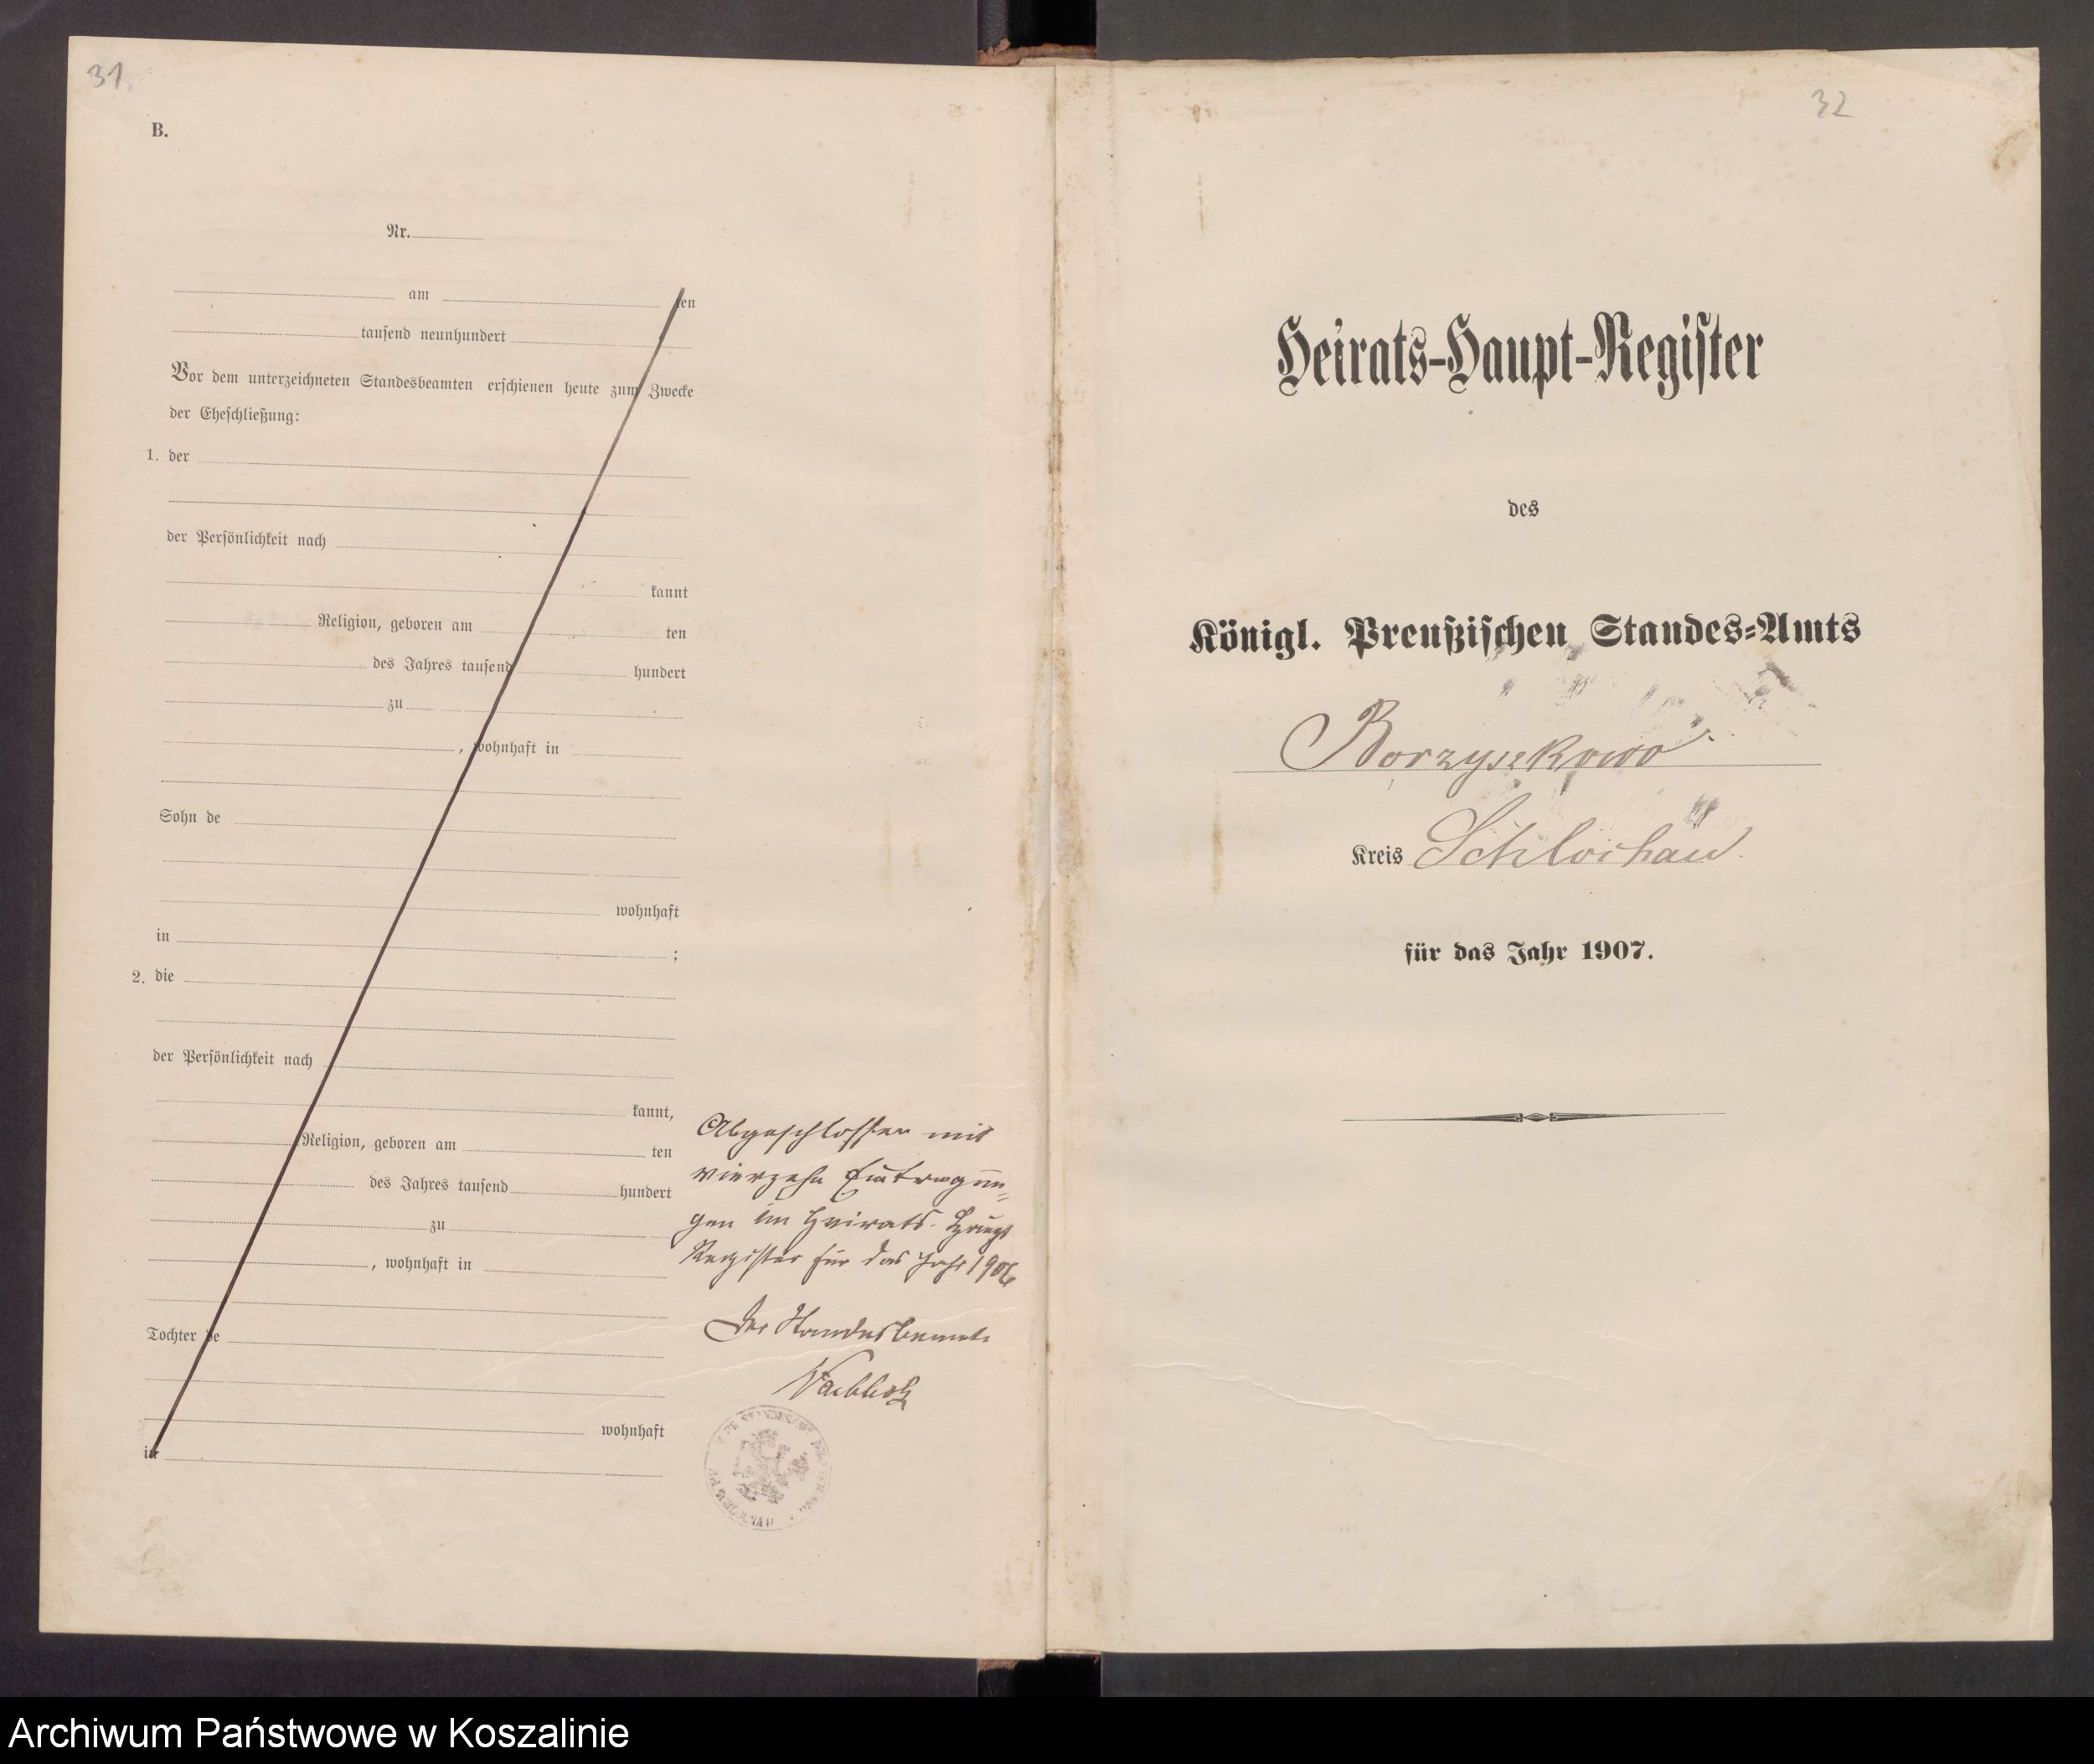 31.
B.
Nr.
am ten
tausend neunhundert
Vor dem unterzeichneten Standesbeamten erschienen heute zum Zwecke
der Eheschließung:
1. der
der Persönlichkeit nach
kannt
Religion, geboren am ten
des Jahres tausend hundert
zu
, wohnhaft in
Sohn de
wohnhaft
in ;
2. die
der Persönlichkeit nach
kannt,
Religion, geboren am ten
des Jahres tausend hundert
zu
, wohnhaft in
Tochter de
wohnhaft
in
Abgeschlossen mit
vierzehn Eintragun=
gen im Heirats-Haupt
Register für das Jahr 1906
Der Standesbeamte
32
Heirats-Haupt-Register
des
Königl. Preußischen Standes-Amts
Borzyszkowo
Kreis Schlochau.
für das Jahr 1907.
Archiwum Państwowe w Koszalinie